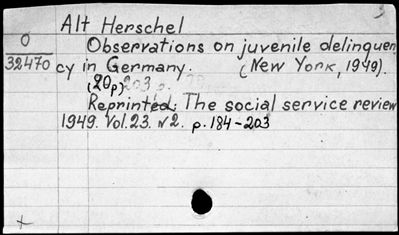 3
Alt Herschel
O
32470
Observations on juvenile delinquen
cy in Germany. (New York, 1949).
(20p) 203 p.
Reprinted: The social service review
1949. Vol.23. N2. p.184-203
+